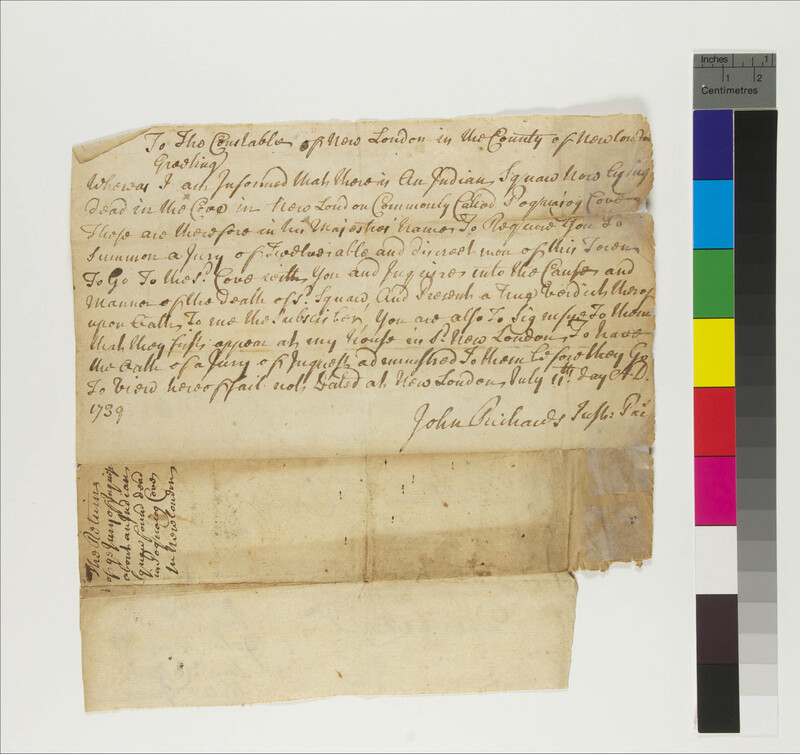 To The Constable of New London in the County of New London
Greeting
Whereas I am Informed that there is An Indian Squaw Now Lying
dead in the Cove in New London Commonly Called Poquaiog Cove
These are therefore in his Majesties Name To Require You To
Summon a Jury of Twelve able and discreet men of this Town
To Go To the sd. Cove with You and Inquire into the Cause and
Manner of the death of sd. Squaw, And Present a True Verdict thereof
upon Oath To me the Subscriber, You are also To Signifye To them
that they first appear at my House in sd. New London To have
the Oath of a Jury of Inquest administred To them before they Go
To View hereof fail not Dated at New London July 11th. day A:D.
1739
John Richards Just: Pac
The Return
of ye Jury of Inquest
about an Indian
Squaw found dead
in Poquaiog Cove
In New London
Inches 1
1 2
Centimetres